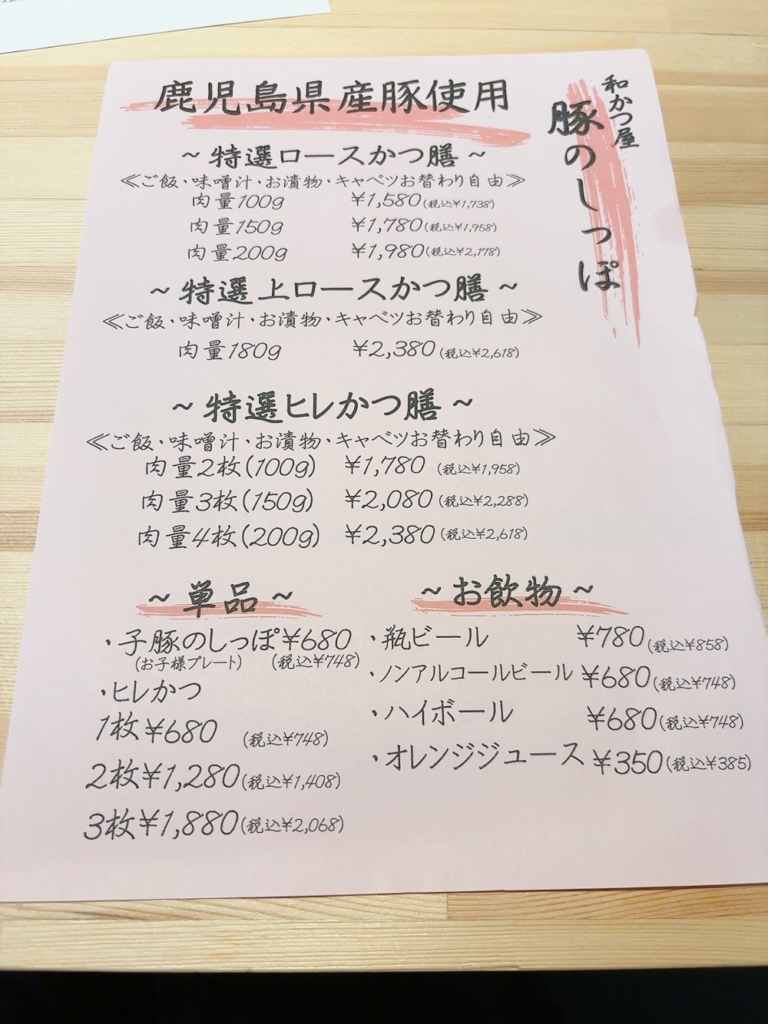 和かつ屋
豚のしっぽ
鹿児島県産豚使用
~特選ロースかつ膳~
≪ご飯・味噌汁・お漬物・キャベツお替わり自由≫
肉量100g ¥1,580(税込¥1,738)
肉量150g ¥1,780(税込¥1,958)
肉量200g ¥1,980(税込¥2,178)
~特選上ロースかつ膳~
≪ご飯・味噌汁・お漬物・キャベツお替わり自由≫
肉量180g ¥2,380(税込¥2,618)
~特選ヒレかつ膳~
≪ご飯・味噌汁・お漬物・キャベツお替わり自由≫
肉量2枚(100g) ¥1,780 (税込¥1,958)
肉量3枚(150g) ¥2,080(税込¥2,288)
肉量4枚(200g) ¥2,380(税込¥2,618)
~単品~
・子豚のしっぽ¥680
(お子様プレート) (税込¥748)
・ヒレかつ
1枚¥680 (税込¥748)
2枚¥1,280(税込¥1,408)
3枚¥1,880(税込¥2,068)
~お飲物~
・瓶ビール ¥780(税込¥858)
・ノンアルコールビール ¥680(税込¥748)
・ハイボール ¥680(税込¥748)
・オレンジジュース ¥350(税込¥385)